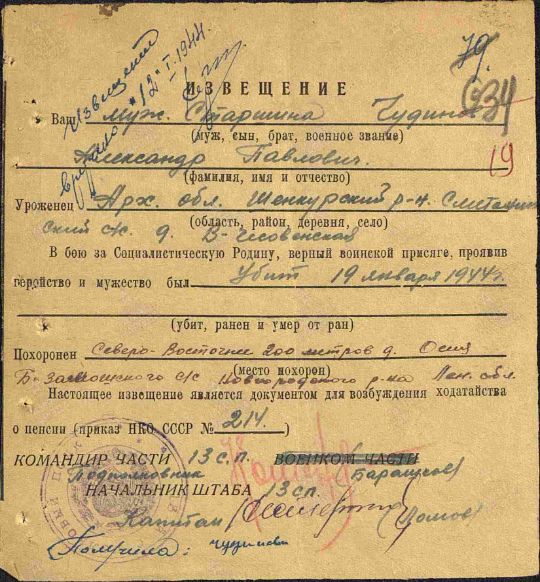 79.
Извещение
12 I. 1944.
ИЗВЕЩЕНИЕ
Ваш муж Старшина Чудинов
(муж, сын, брат, военное звание)
19
Александр Павлович.
(фамилия, имя и отчество)
Уроженец Арх. обл. Шенкурский р-н.
(область, район, деревня, село)
ский с/с д.
В бою за Социалистическую Родину, верный воинской присяге, проявив
геройство и мужество был Убит 19 января 1944г.
(убит, ранен и умер от ран)
Похоронен Северо-Восточнее 200 метров д. Осия
(место похорон)
с/с Новгородского р-на Лен. обл.
Настоящее извещение является документом для возбуждения ходатайства
о пенсии (приказ НКО СССР № 214. )
КОМАНДИР ЧАСТИ 13 с.п. ВОЕНКОМ ЧАСТИ
Подполковник
НАЧАЛЬНИК ШТАБА 13 сп.
Капитан (Домов)
Получила: